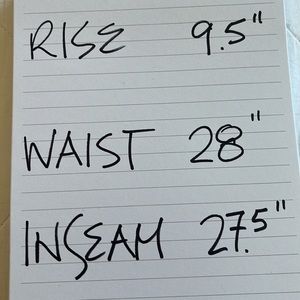 RISE 9.5"
WAIST 28"
INSEAM 27.5"